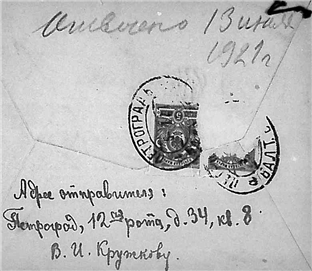 Отвечено 13 июля
1921 г
ПЕТРОГРАД
Адрес отправителя:
Петроград, 12ая рота, д. 34, кв. 8
В. И. Кружкову.